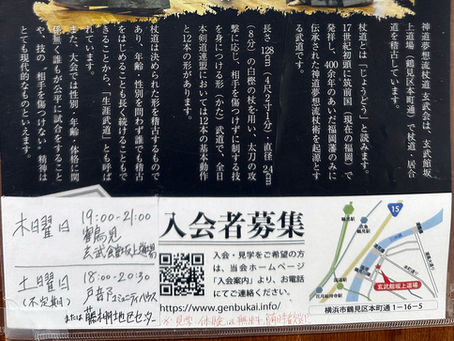 神道夢想流杖道 玄武会は、玄武館坂
上道場(鶴見区本町通)で杖道・居合
道を稽古しています。
杖道とは「じょうどう」と読みます。
17世紀初頭に筑前国(現在の福岡)で
発祥し、400余年のあいだ福岡藩のみに
伝承された神道夢想流杖術を起源とす
る武道です。
長さ128cm(4尺2寸1分)直径2.4cm
(8分)の白樫の杖を用い、太刀の攻
撃に応じ、相手を傷つけずに制する技
を身につける形(かた)武道で、全日
本剣道連盟においては12本の基本動作
と12本の形があります。
杖道は決められた形を稽古するもので
あり、年齢・性別を問わず誰でも稽古
をはじめることも長く続けることもで
きることから、「生涯武道」とも呼ば
れています。
また、大会では性別・年齢・体格に関
係無く誰もが公平に試合をすること
や、技の「相手を傷つけない」精神は
とても現代的なものといえます。
木曜日 19:00-21:00
玄武館坂上道場
土曜日 18:00-20:30
(不定期)
または
入会者募集
入会・見学をご希望の方
は、当会ホームページ
「入会案内」より、お電話
にてご連絡ください。
https://www.genbukai.info/
※見学 体験は無料
15
鶴見駅
国道駅
花月総持寺駅
玄武館坂上道場
横浜市鶴見区本町通1-16-5